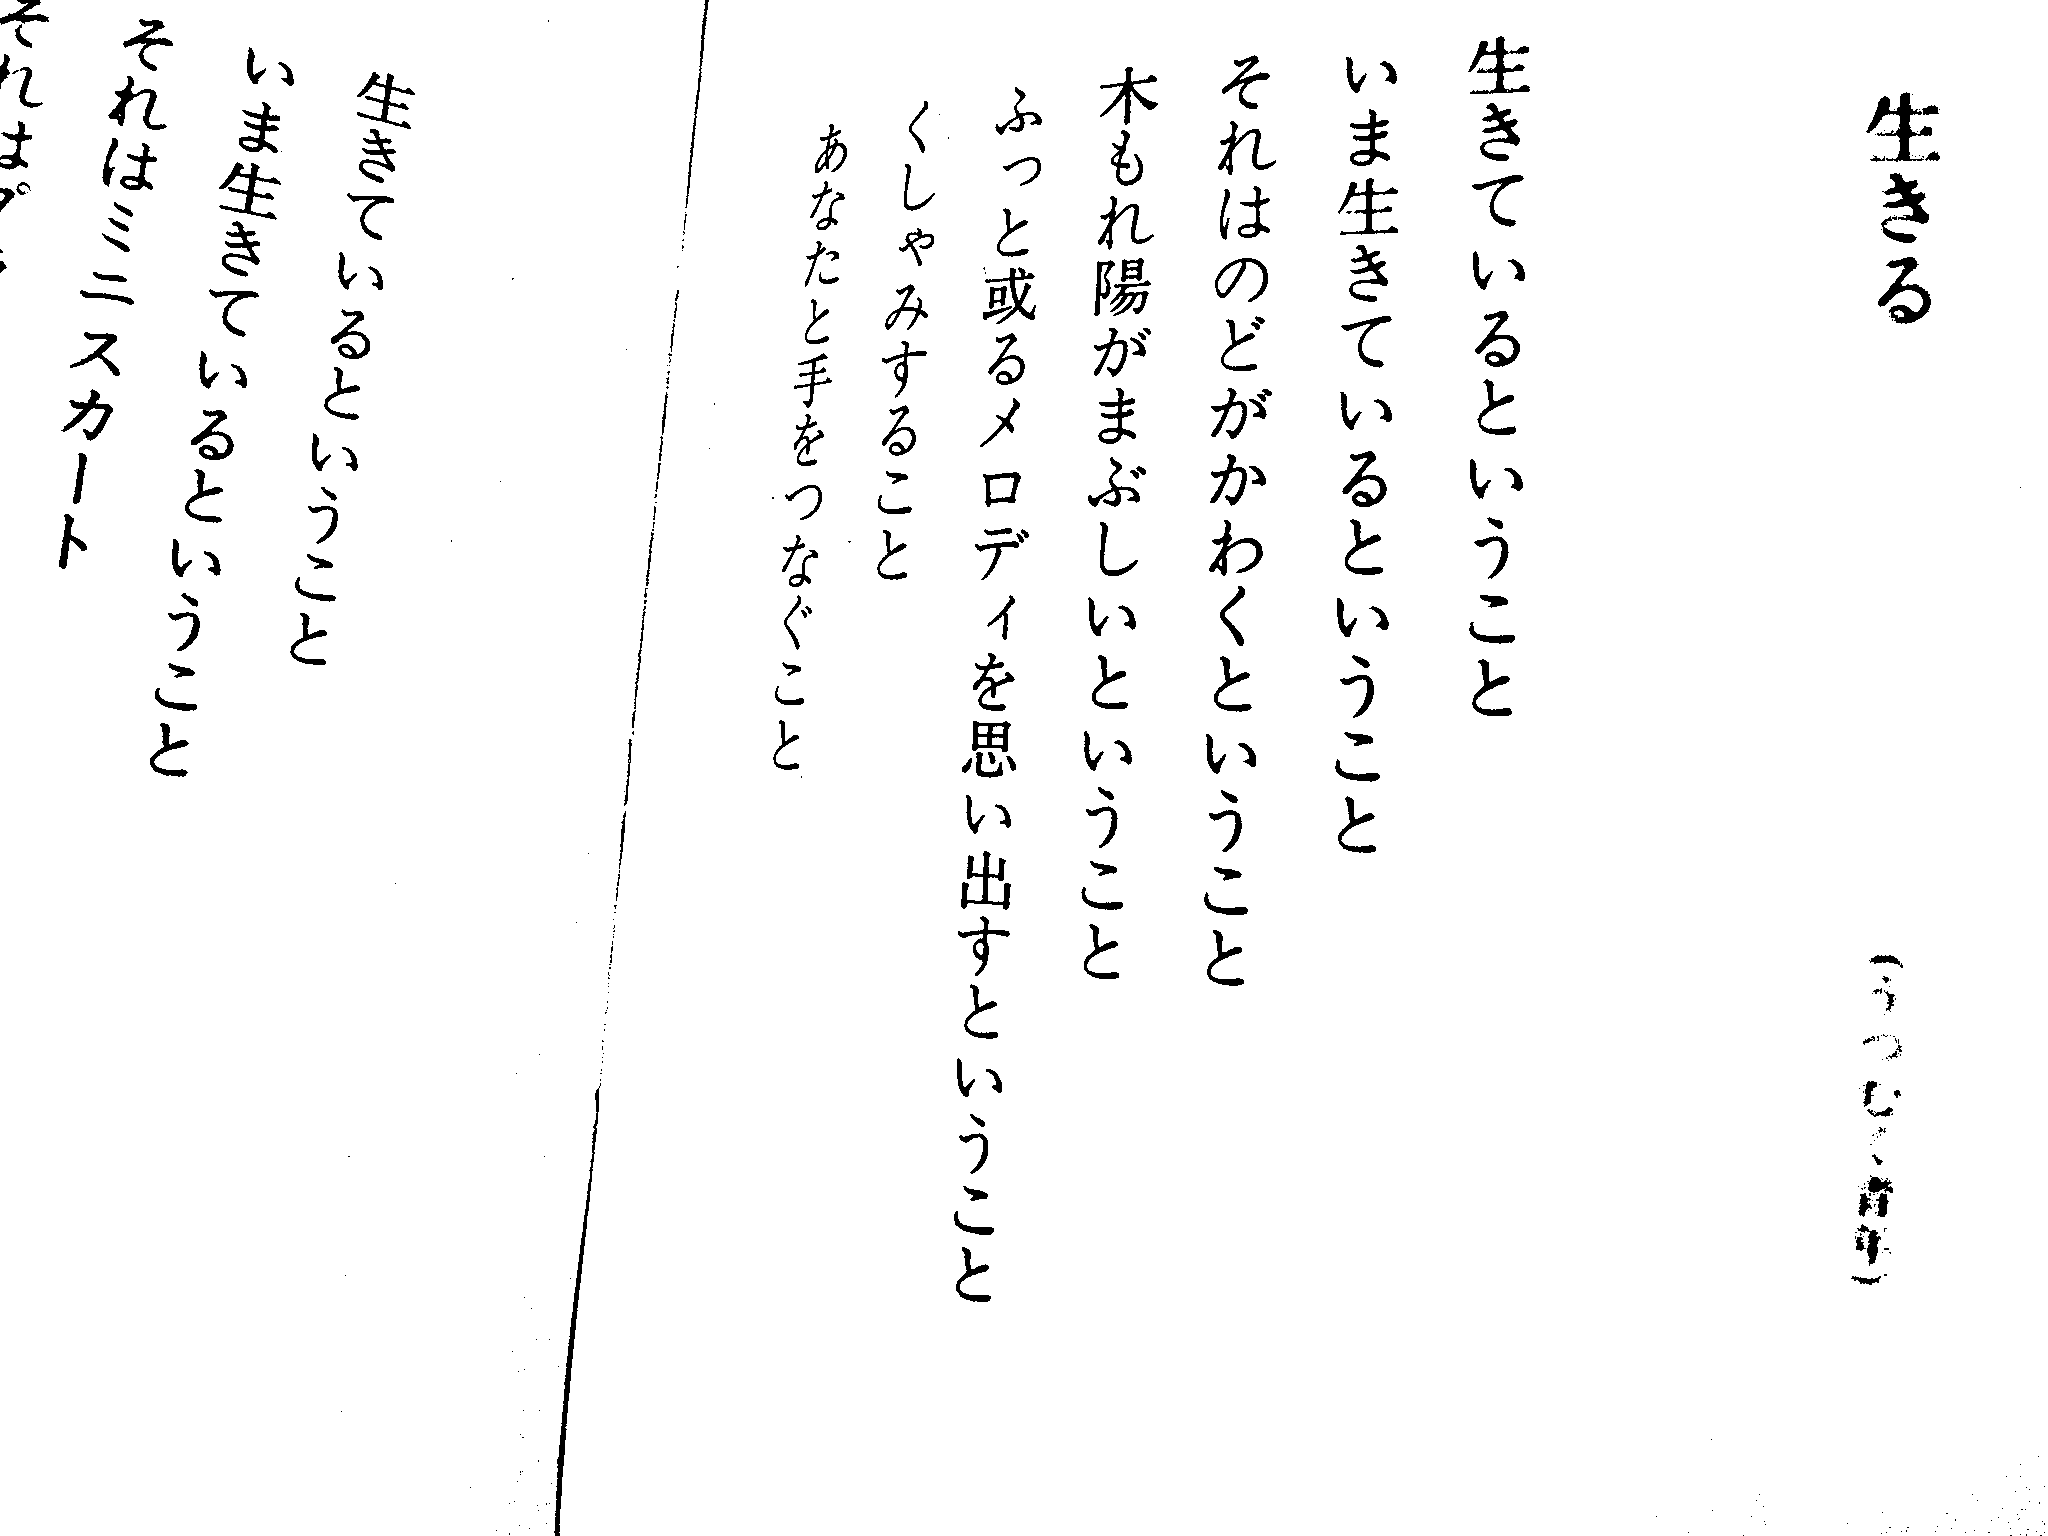 生きる
（うつむく青年）
生きているということ
いま生きているということ
それはのどがかわくということ
木もれ陽がまぶしいということ
ふっと或るメロディを思い出すということ
くしゃみすること
あなたと手をつなぐこと
生きているということ
いま生きているということ
それはミニスカート
それはプラ